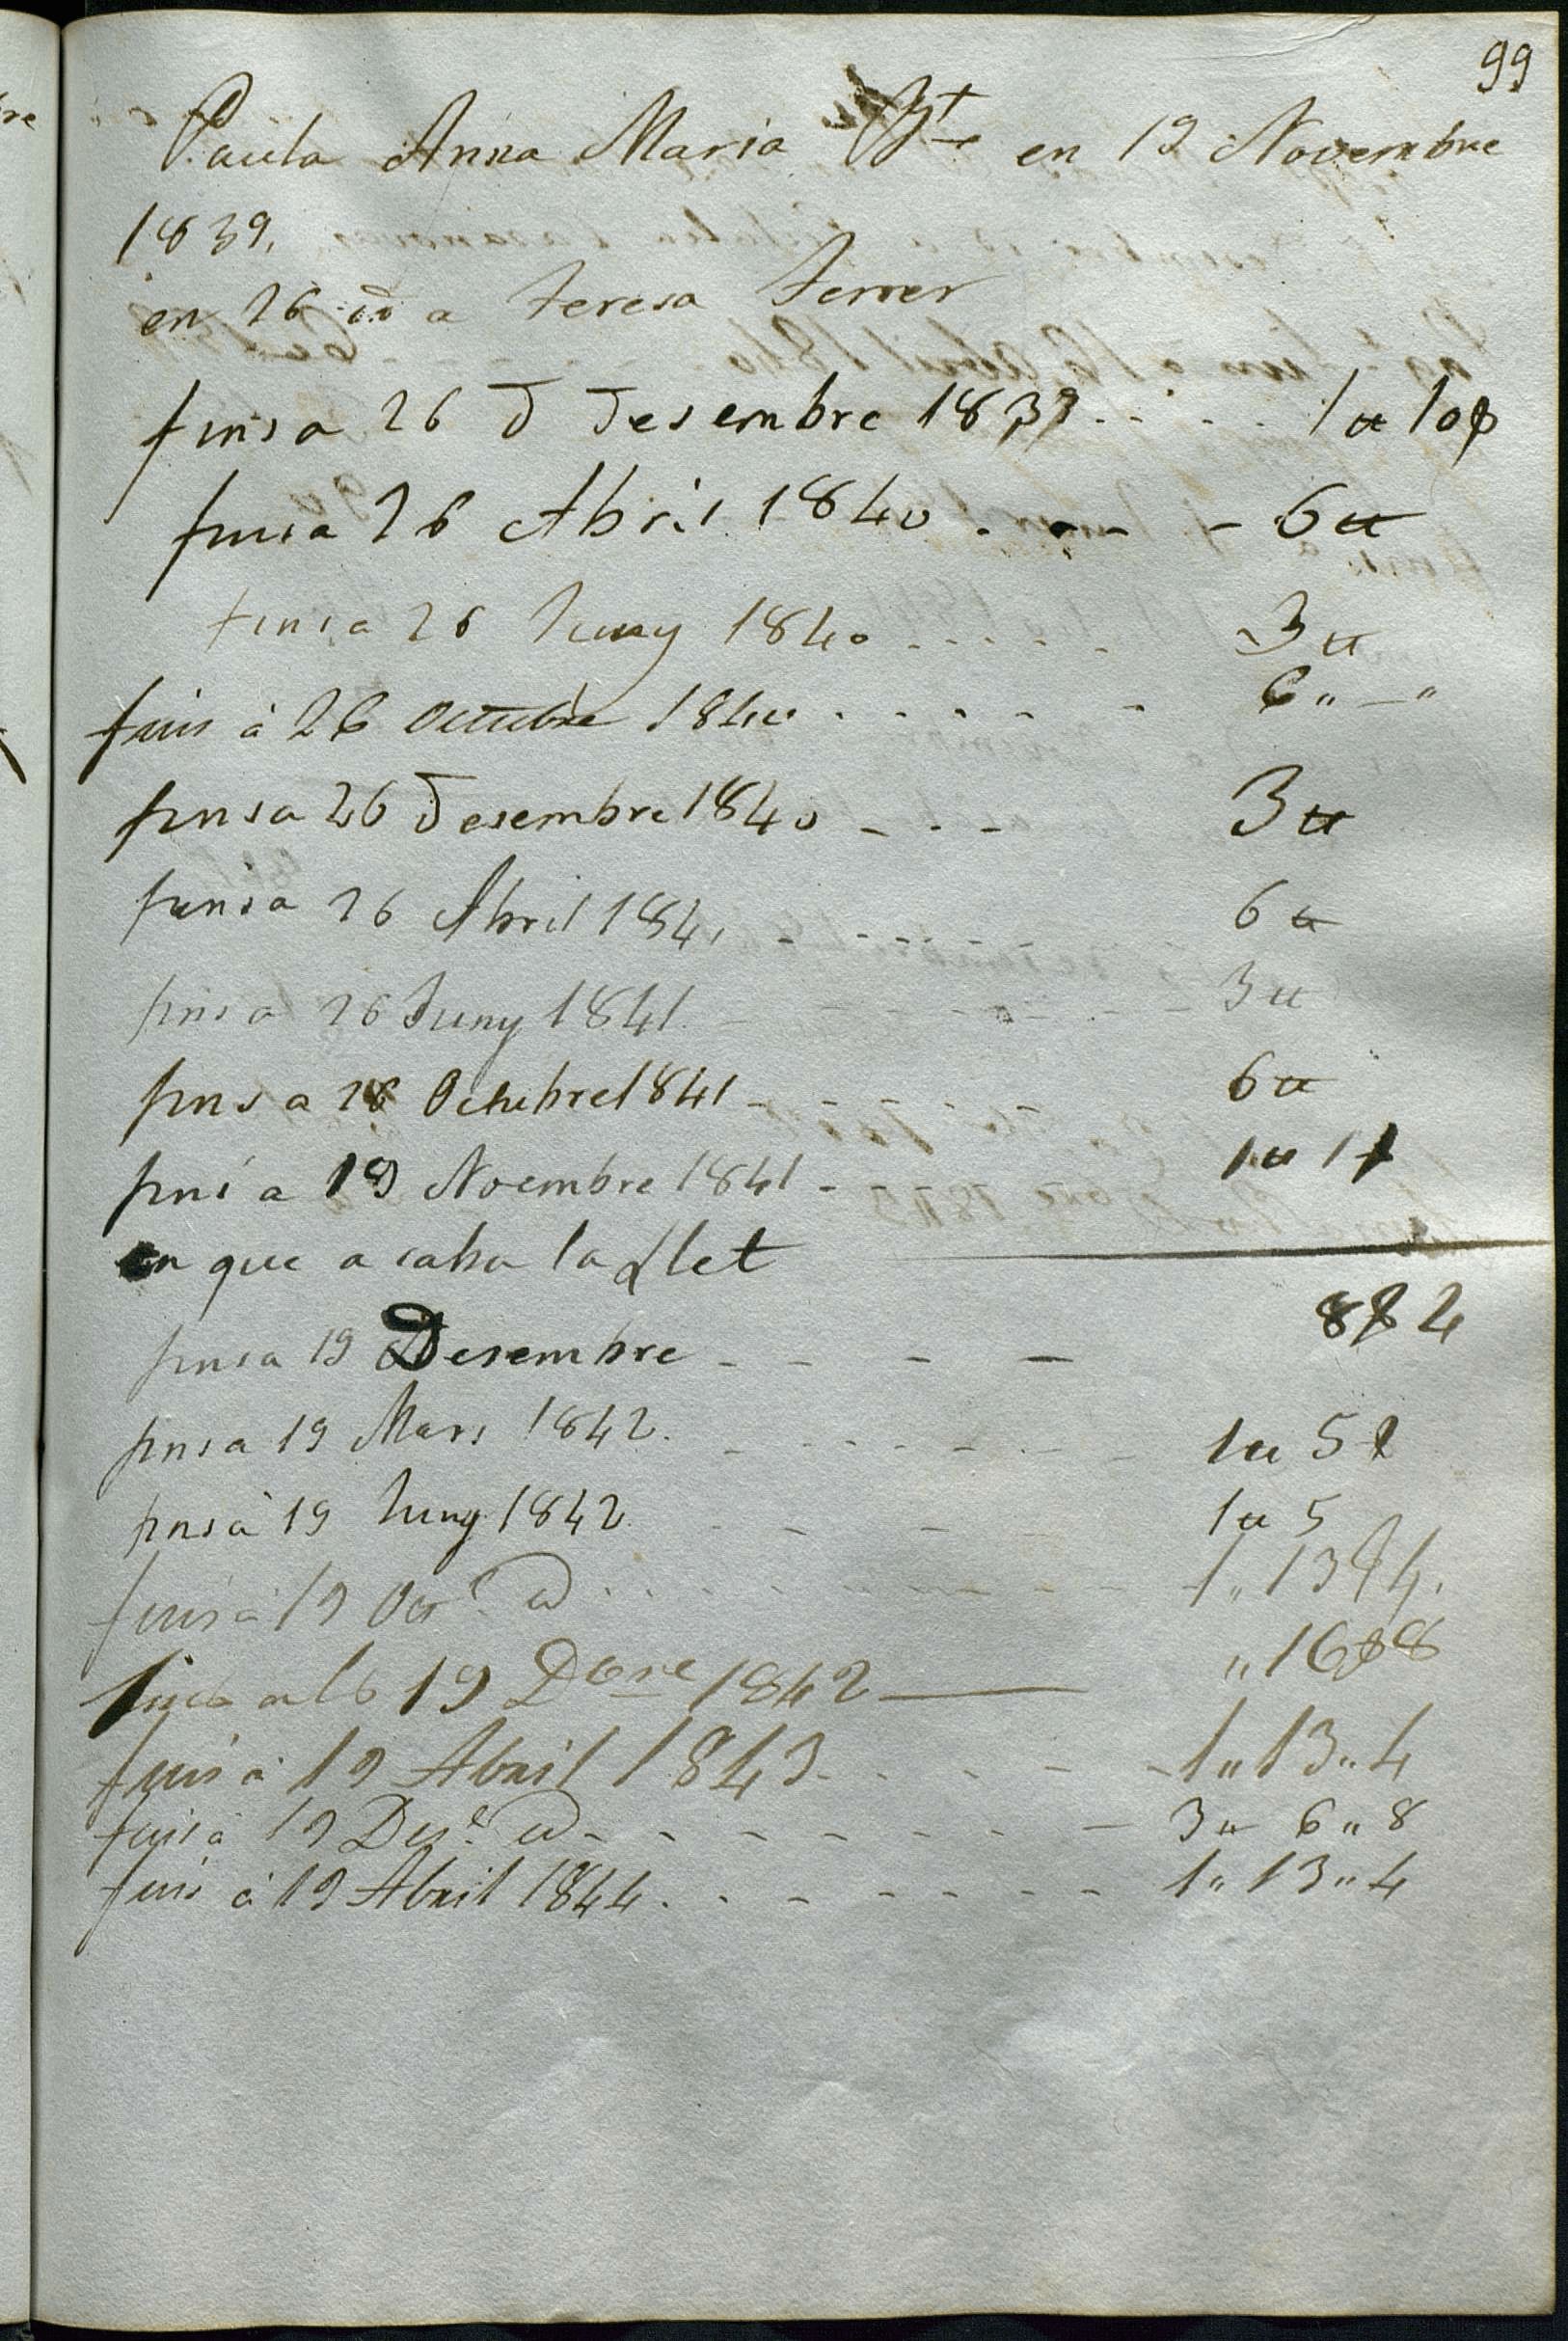 99
Paula Anna Maria Bte en 19 Novembre
1839.
en 26 id a Teresa Ferrer
fins a 26 d Desembre 1839 . . . . 1 ₶ 10 ß
fins a 26 Abril 1840 . - - - 6 ₶
fins a 26 Juny 1840 . . . . . 3 ₶
fins à 26 Octubre 1840 . . . . - 6 " — "
fins a 26 Desembre 1840 - - - 3 ₶
fins a 26 Abril 1841 - - - - - 6 ₶
fins a 26 Juny 1841 - - - - - - 3 ₶
fins a 26 Octubre 1841 - - - - - 6 ₶
fins a 19 Noembre 1841 - - - - 1 ₶ 1
en que acaba la Llet
fins a 19 Desembre - - - - 8 ß 4
fins a 19 Mars 1842. - - - - - - 1 ₶ 5 ß
fins à 19 Juny 1842 - - - 1 ₶ 5
fins à 19 Oce id . . . . . - - - 1 " 13 ß 4.
fins als 19 Dbre 1842 — " 16 ß 8
fins à 19 Abril 1843 . . . - - 1 " 13 " 4
fins à 19 Dese id - - - - - - - - 3 ₶ 6 " 8
fins à 19 Abril 1844 . . - - - - - - 1 " 13 " 4